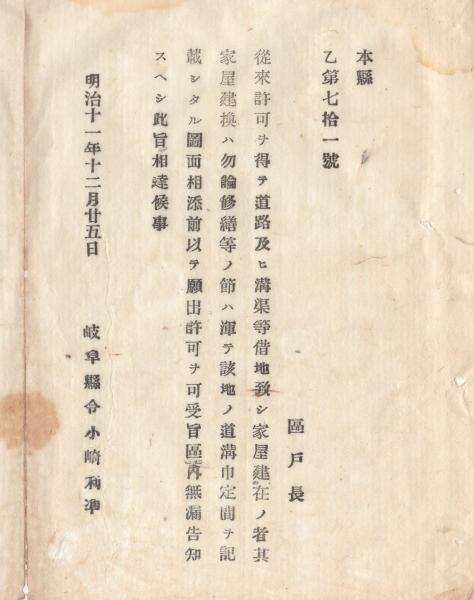 本縣
乙第七拾一號
區戸長
從來許可ヲ得テ道路及ヒ溝渠等借地致シ家屋建在ノ者其
家屋建換ハ勿論修繕等ノ節ハ渾テ該地ノ道溝巾定間ヲ記
載シタル圖面相添前以テ願出許可ヲ可受旨區内無漏告知
スヘシ此旨相達候事
明治十一年十二月廿五日
岐阜縣令小崎利準